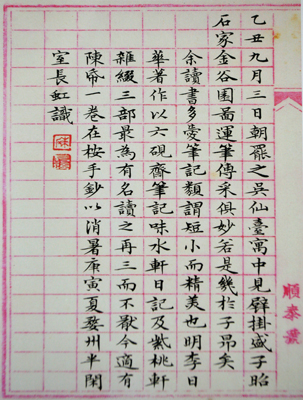 乙丑九月三日朝罷之吳仙臺寓中見壁掛盛子昭
石家金谷園圖運筆傳采俱妙若是幾於子昂矣
余讀書多愛筆記類謂短小而精美也明李日
華著作以六硯齋筆記味水軒日記及紫桃軒
雜綴三部最為有名讀之再三而不厭今適有
陳帋一卷在桉手鈔以消暑庚寅夏婺州半閑
室長虹識
順泰號